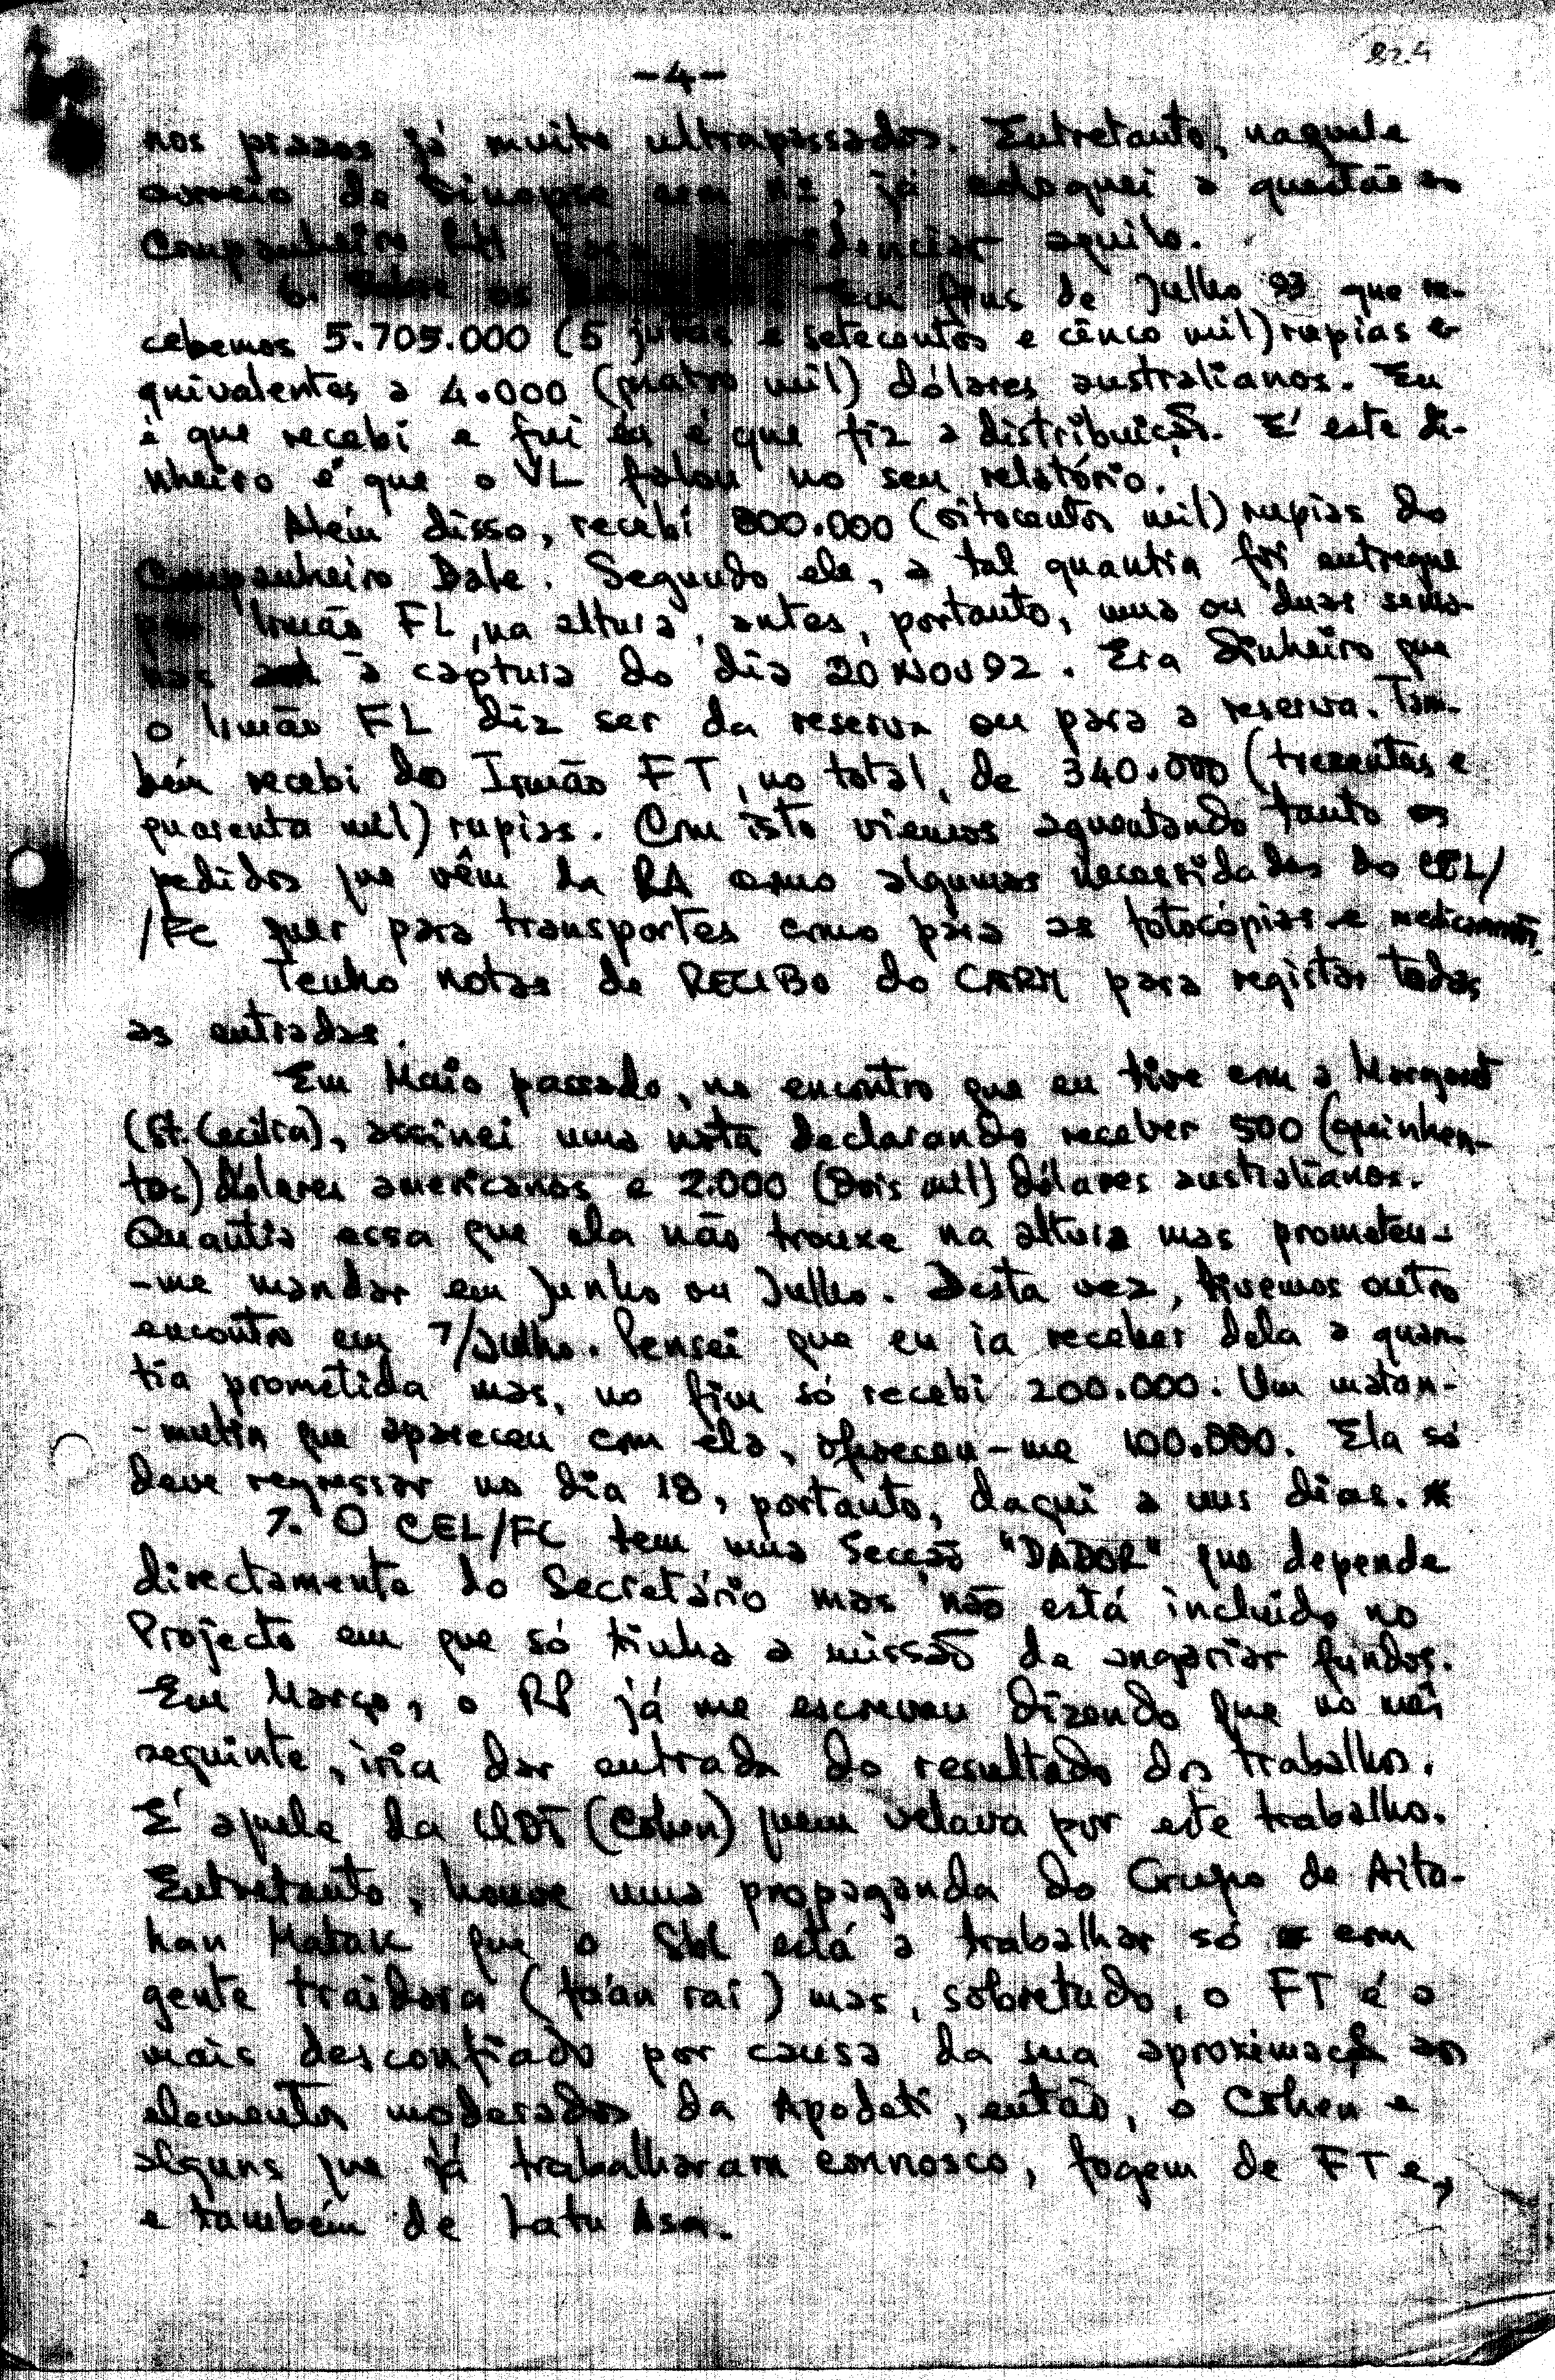 -4-
nos prazos já muito ultrapassados. Entretanto, naquele
correio de Sinopse sem nº, já coloquei a questão ao
Companheiro para providenciar aquilo.
6. Sobre os Em fins de Julho 93 que re-
cebemos 5.705.000 (5 jutas e setecentos e cênco mil) rupias e-
quivalentes a 4.000 (quatro mil) dólares australianos. Eu
é que recebi e fui eu é que fiz a distribuição. É este di-
nheiro é que o VL falou no seu relatório.
Além disso, recebi 800.000 (oitocentos mil) rupias do
Companheiro Dale. Segundo ele, a tal quantia foi entregue
por Irmão FL, na altura, antes, portanto, uma ou duas sema-
nas à captura do dia 20 Nov 92. Era dinheiro que
o Irmão FL diz ser da reserva ou para a reserva. Tam-
bém recebi do Irmão FT, no total, de 340.000 (trezentas e
quarenta mil) rupias. Com isto viemos aguentando tanto os
pedidos que vêm da RA como algumas necessidades do CEL/
/FC quer para transportes como para as fotocópias e medicamentos.
Tenho notas de RECIBO do CNRM para registar todas
as entradas.
Em Maio passado, no encontro que eu tive com a Margaret
(St. Cecilia), assinei uma nota declarando receber 500 (quinhen-
tos) dólares americanos e 2.000 (dois mil) dólares australianos.
Quantia essa que ela não trouxe na altura mas prometeu-
-me mandar em Junho ou Julho. Desta vez, tivemos outro
encontro em 7/Julho. Pensei que eu ia receber dela a quan-
tia prometida mas, no fim só recebi 200.000. Um matan-
-mutin que apareceu com ela, ofereceu-me 100.000. Ela só
deve regressar no dia 18, portanto, daqui a uns dias.
7. O CEL/FC tem uma Secção "DADOR" que depende
directamente do Secretário mas não está incluido no
Projecto em que só tinha a missão de angariar fundos.
Em Março, o RP já me escreveu dizendo que no mês
seguinte, iria dar entrada do resultado dos trabalhos.
É aquele da UDT (Cohen) quem velava por este trabalho.
Entretanto, houve uma propaganda do Grupo de Aita-
han Matak que o Sol está a trabalhar só com
gente traidora (fa'an rai) mas, sobretudo, o FT é o
mais desconfiado por causa da sua aproximação aos
elementos moderados da Apodeti, então, o Cohen e
alguns que já trabalharam connosco, fogem de FT e,
e também de Latu Asa.